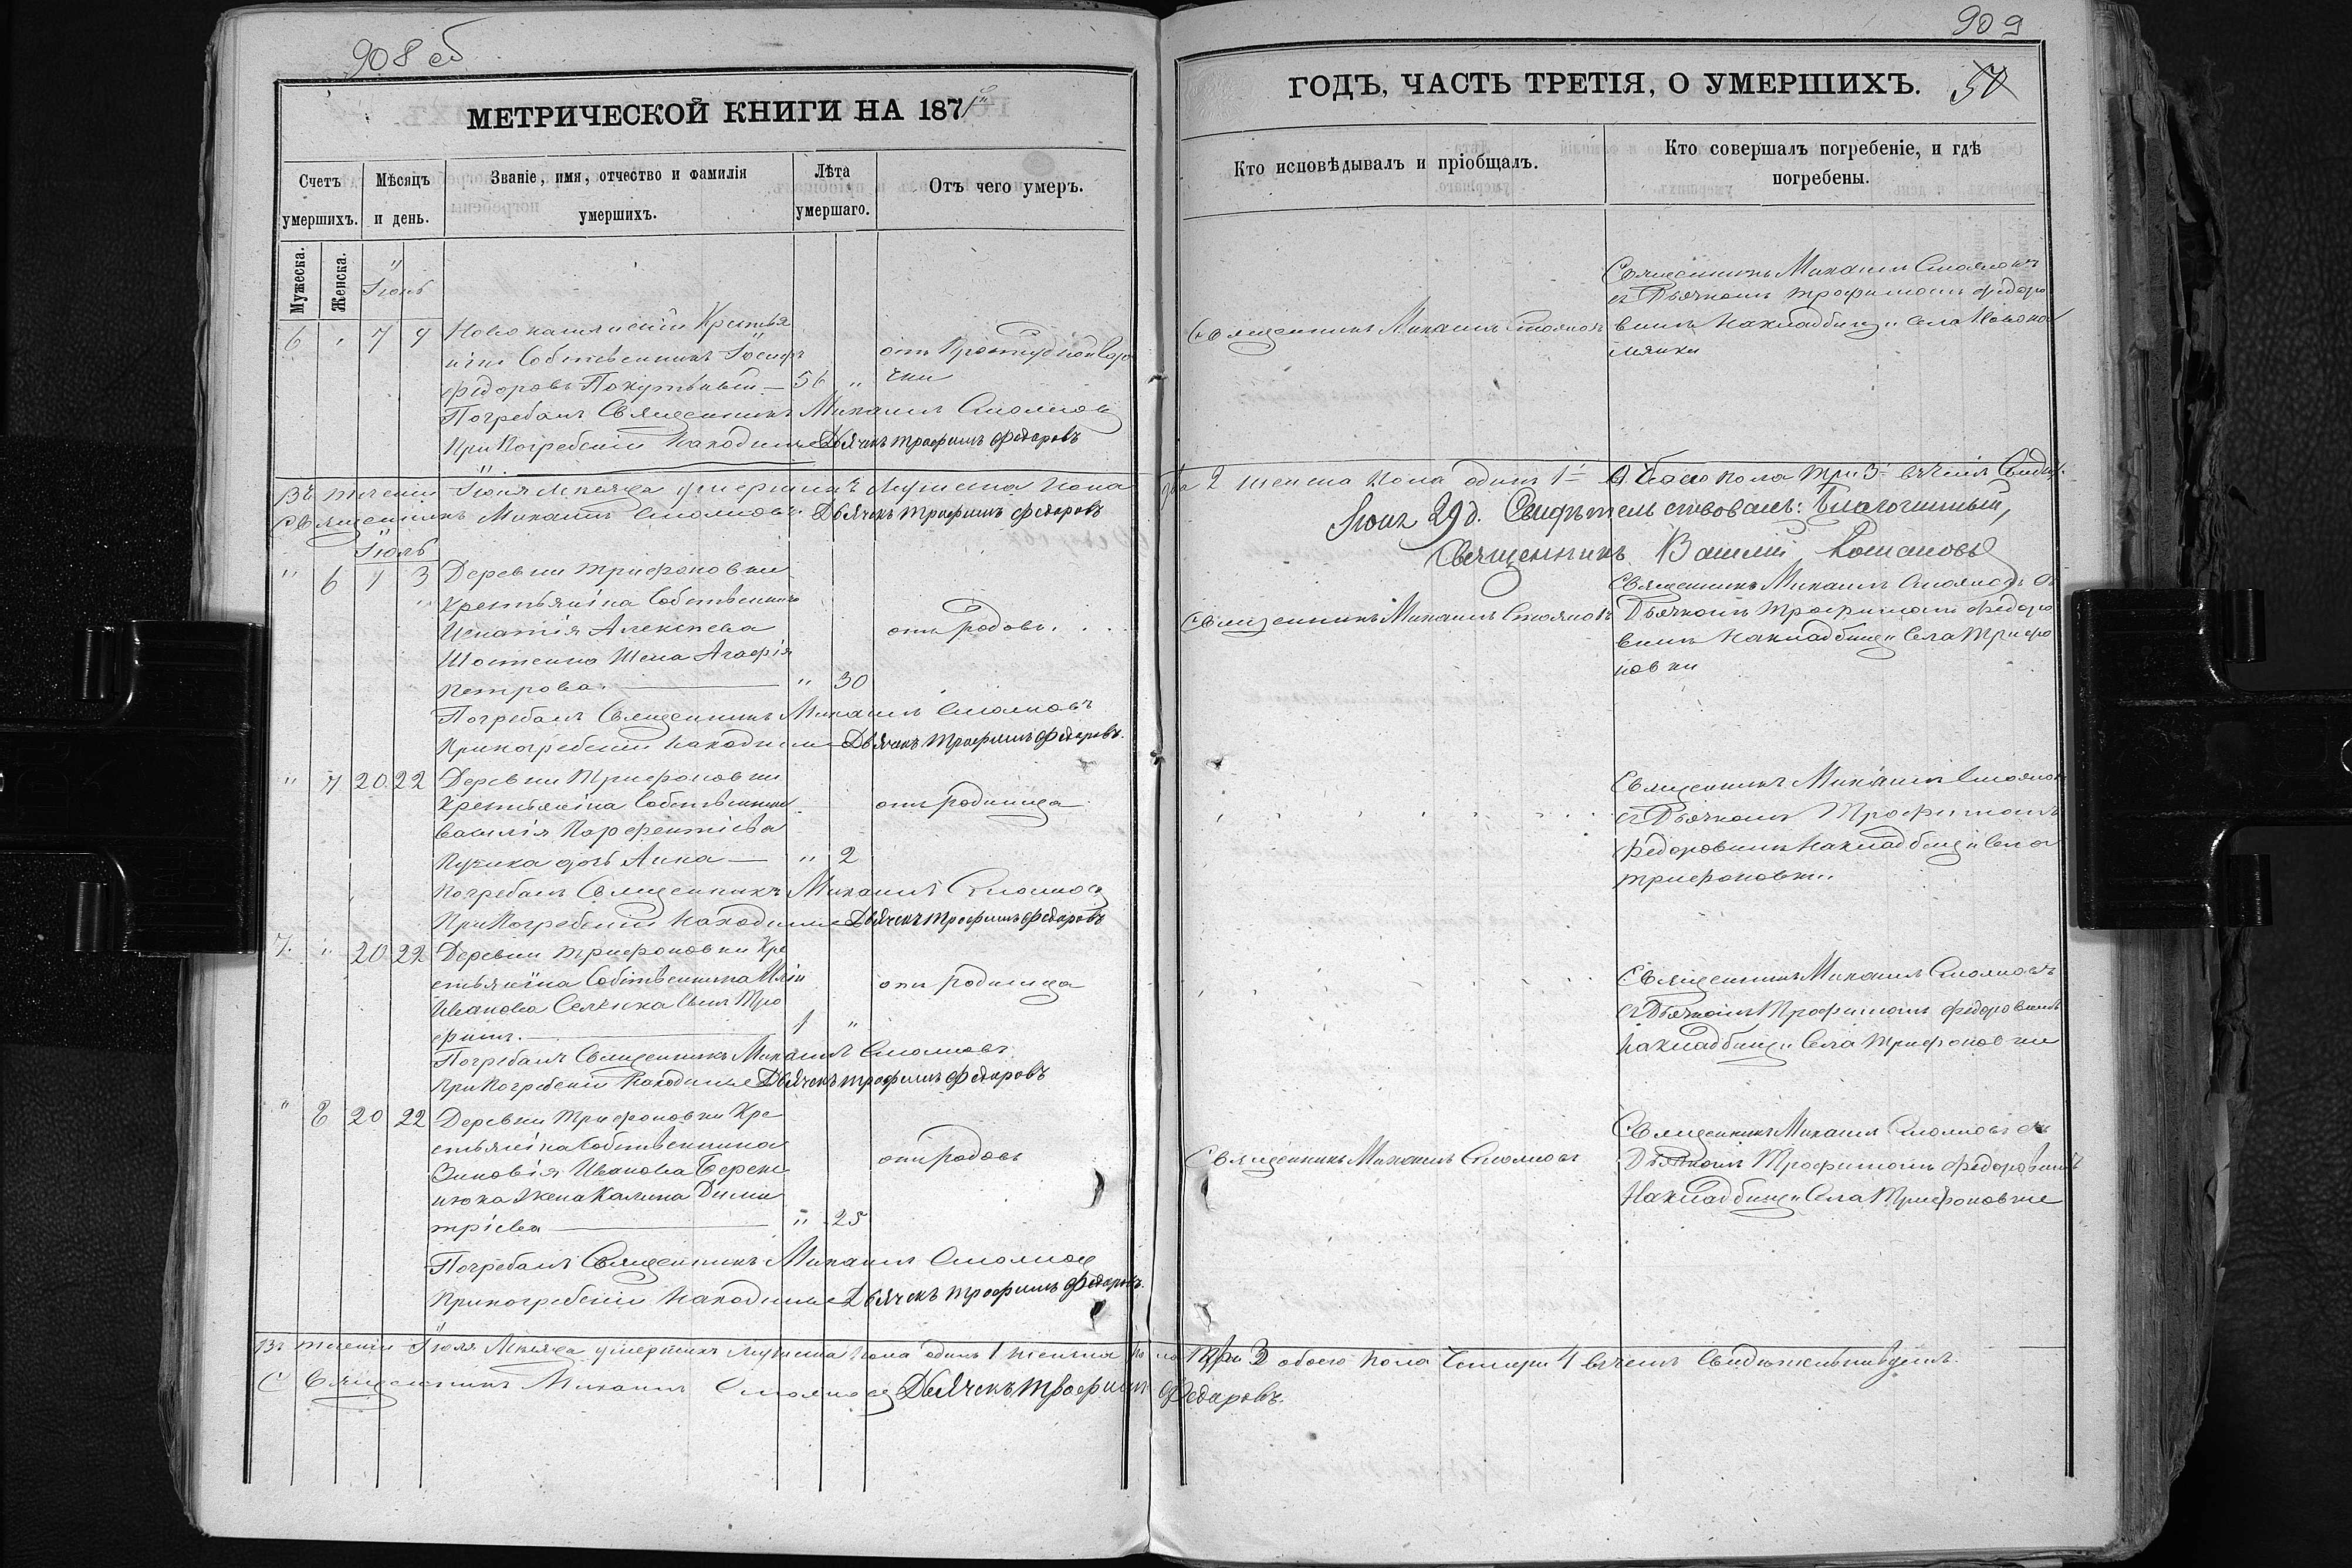 908 об
МЕТРИЧЕСКОЙ КНИГИ НА 1871
Счетъ умершихъ.
Мѣсяцъ и день.
Званіе, имя, отчество и фамилія умершихъ.
Лѣта умершаго.
Отъ чего умеръ.
Мужеска.
Женска.
Іюнь
6 " 7 9 Новокаменскій Крестья
нинъ Собственникъ Іосифъ
Федоровъ 56 "
отъ Простудной Горя
чки
Погребалъ Священникъ Михаилъ Стояновъ
При Погребеніи Находился Дьячекъ Трофимъ Федоровъ
Въ теченіи Іюня Мѣсяца умершихъ Мужеска Пола
Священникъ Михаилъ Стояновъ Дьячекъ Трофимъ Федоровъ
Іюль
" 6 1 3 Деревни Трифоновки
Крестьянина Собственника
Игнатія Алексѣева
Жена Агафія
Петрова " 30
отъ родовъ
Погребалъ Священникъ Михаилъ Стояновъ
При погребеніи Находился Дьячекъ Трофимъ Федоровъ.
" 7 20 22 Деревни Трифоновки
Крестьянина Собственника
Василія Парфентіева
дочь Анна " 2
отъ родимца
Погребалъ Священникъ Михаилъ Стояновъ
При Погребеніи Находился Дьячекъ Трофимъ Федоровъ
7 " 20 22 Деревни Трифоновки Кре
стьянина Собственника Иліи
Иванова Сынъ Тро
фимъ. 1 "
отъ родимца
Погребалъ Священникъ Михаилъ Стояновъ
При Погребеніи Находился Дьячекъ Трофимъ Федоровъ
" 8 20 22 Деревни Трифоновки Кре
стьянина Собственника
Зиновія Иванова Береж
нюка Жена Калина Дими
тріева " 25
отъ родовъ
Погребалъ Священникъ Михаилъ Стояновъ
При погребеніи Находился Дьячекъ Трофимъ Федоровъ.
Въ теченіи Іюля Мѣсяца умершихъ Мужеска Пола одинъ 1 женска по
Священникъ Михаилъ Стояновъ Дьячекъ Трофимъ
909
ГОДЪ, ЧАСТЬ ТРЕТІЯ, О УМЕРШИХЪ.
57
Кто исповѣдывалъ и пріобщалъ.
Кто совершалъ погребеніе, и гдѣ погребены.
Священникъ Михаилъ Стояновъ
Священникъ Михаилъ Стояновъ
съ Дьячкомъ Трофимомъ Федоро
вымъ На кладбищѣ Села Новока
мянки
два 2 женска пола одинъ 1 Обоего пола три 3
Іюля 29 д. Свидѣтельствовалъ: Благочинный,
Священникъ Василій
Священникъ Михаилъ Стояновъ
Священникъ Михаилъ Стояновъ съ
Дьячкомъ Трофимомъ Федоро
вымъ На кладбищѣ Села Трифо
новки
Священникъ Михаилъ Стояновъ
съ Дьячкомъ Трофимомъ
Федоровымъ На кладбищѣ Села
Трифоновки.
Священникъ Михаилъ Стояновъ
съ Дьячкомъ Трофимомъ Федоровымъ
На кладбищѣ Села Трифоновки
Священникъ Михаилъ Стояновъ
Священникъ Михаилъ Стояновъ съ
Дьячкомъ Трофимомъ Федоровымъ
На кладбищѣ Села Трифоновки
ла три 3 обоего пола Четыри 4
Федоровъ.